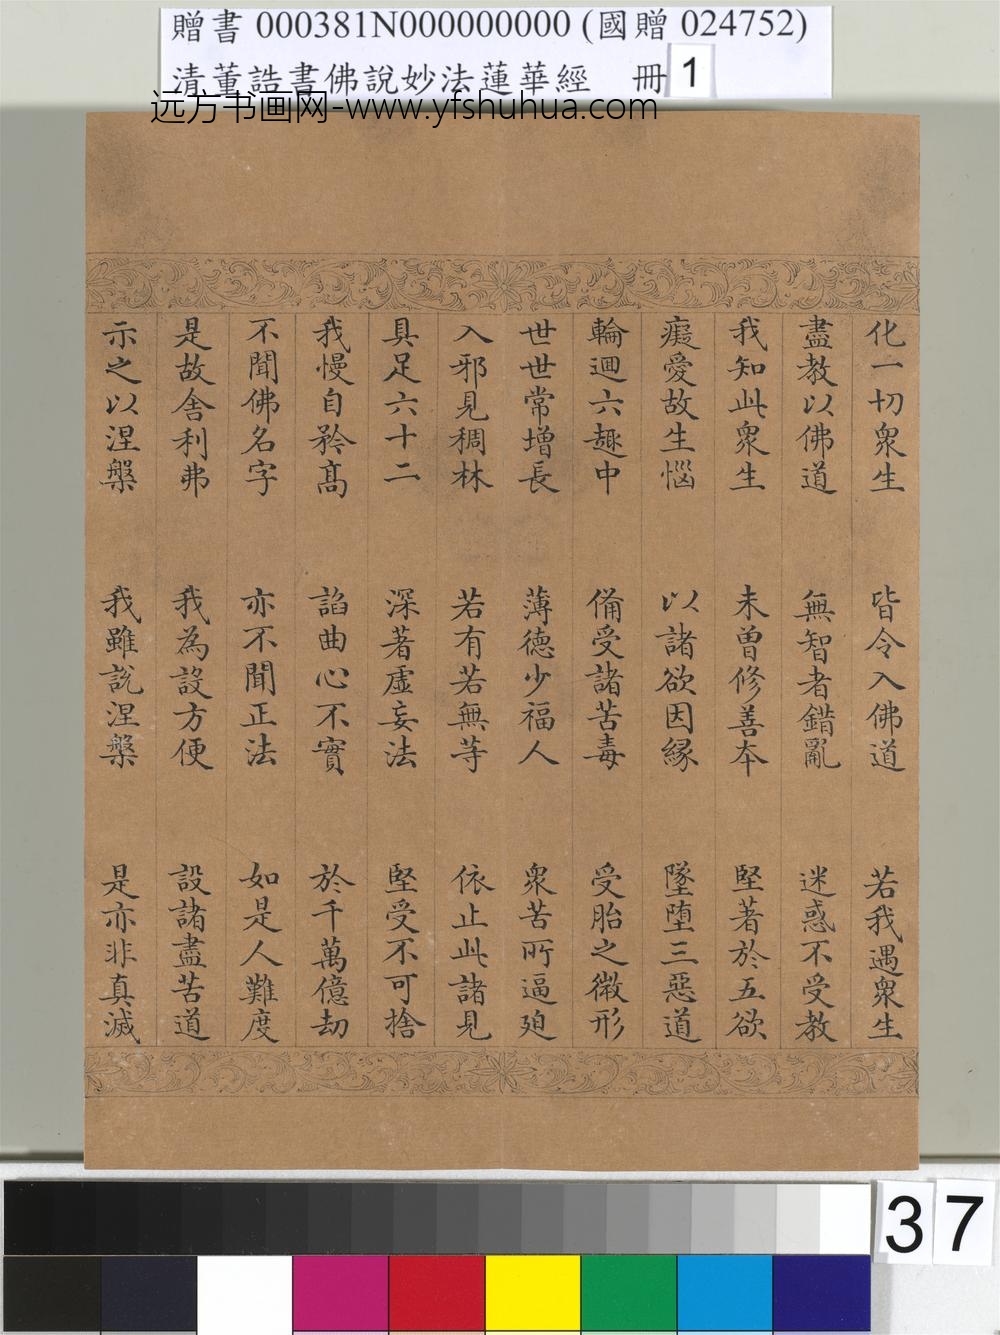 贈書 000381N000000000 (國贈 024752)
清董誥書佛說妙法蓮華經 冊 1
远方书画网-www.yfshuhua.com
化一切衆生 皆令入佛道 若我遇衆生
盡教以佛道 無智者錯亂 迷惑不受教
我知此衆生 未曾修善本 堅著於五欲
癡愛故生惱 以諸欲因緣 墜堕三惡道
輪迴六趣中 備受諸苦毒 受胎之微形
世世常增長 薄德少福人 衆苦所逼廹
入邪見稠林 若有若無等 依止此諸見
具足六十二 深著虛妄法 堅受不可捨
我慢自矜髙 諂曲心不實 於千萬億劫
不聞佛名字 亦不聞正法 如是人難度
是故舍利弗 我為設方便 設諸盡苦道
示之以涅槃 我雖說涅槃 是亦非真滅
37